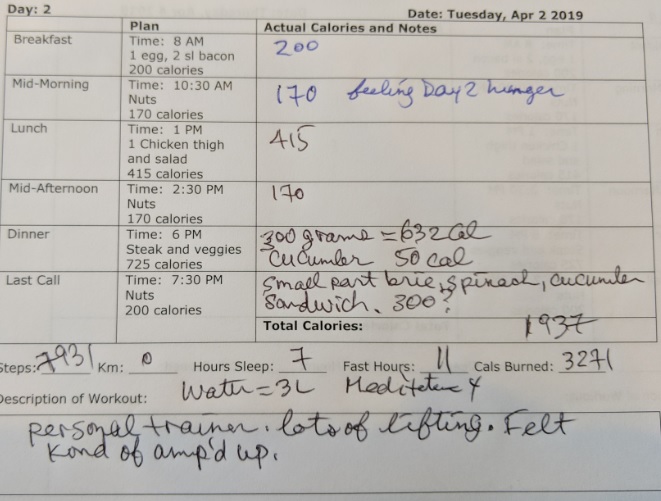 Day: 2 Date: Tuesday, Apr 2 2019
Plan Actual Calories and Notes
Breakfast Time: 8 AM 200
1 egg, 2 sl bacon
200 calories
Mid-Morning Time: 10:30 AM 170 feeling Day 2 hunger
Nuts
170 calories
Lunch Time: 1 PM 415
1 Chicken thigh
and salad
415 calories
Mid-Afternoon Time: 2:30 PM 170
Nuts
170 calories
Dinner Time: 6 PM 300 grams = 632 Cal
Steak and veggies Cucumber 50 cal
725 calories
Last Call Time: 7:30 PM Small part brie, spinach, cucumber
Nuts Sandwich. 300?
200 calories
Total Calories: 1937
Steps: 7931 Km: 0 Hours Sleep: 7 Fast Hours: 11 Cals Burned: 3271
Water = 3L
Description of Workout:
personal trainer. lots of lifting. Felt
Kond of amp'd up.